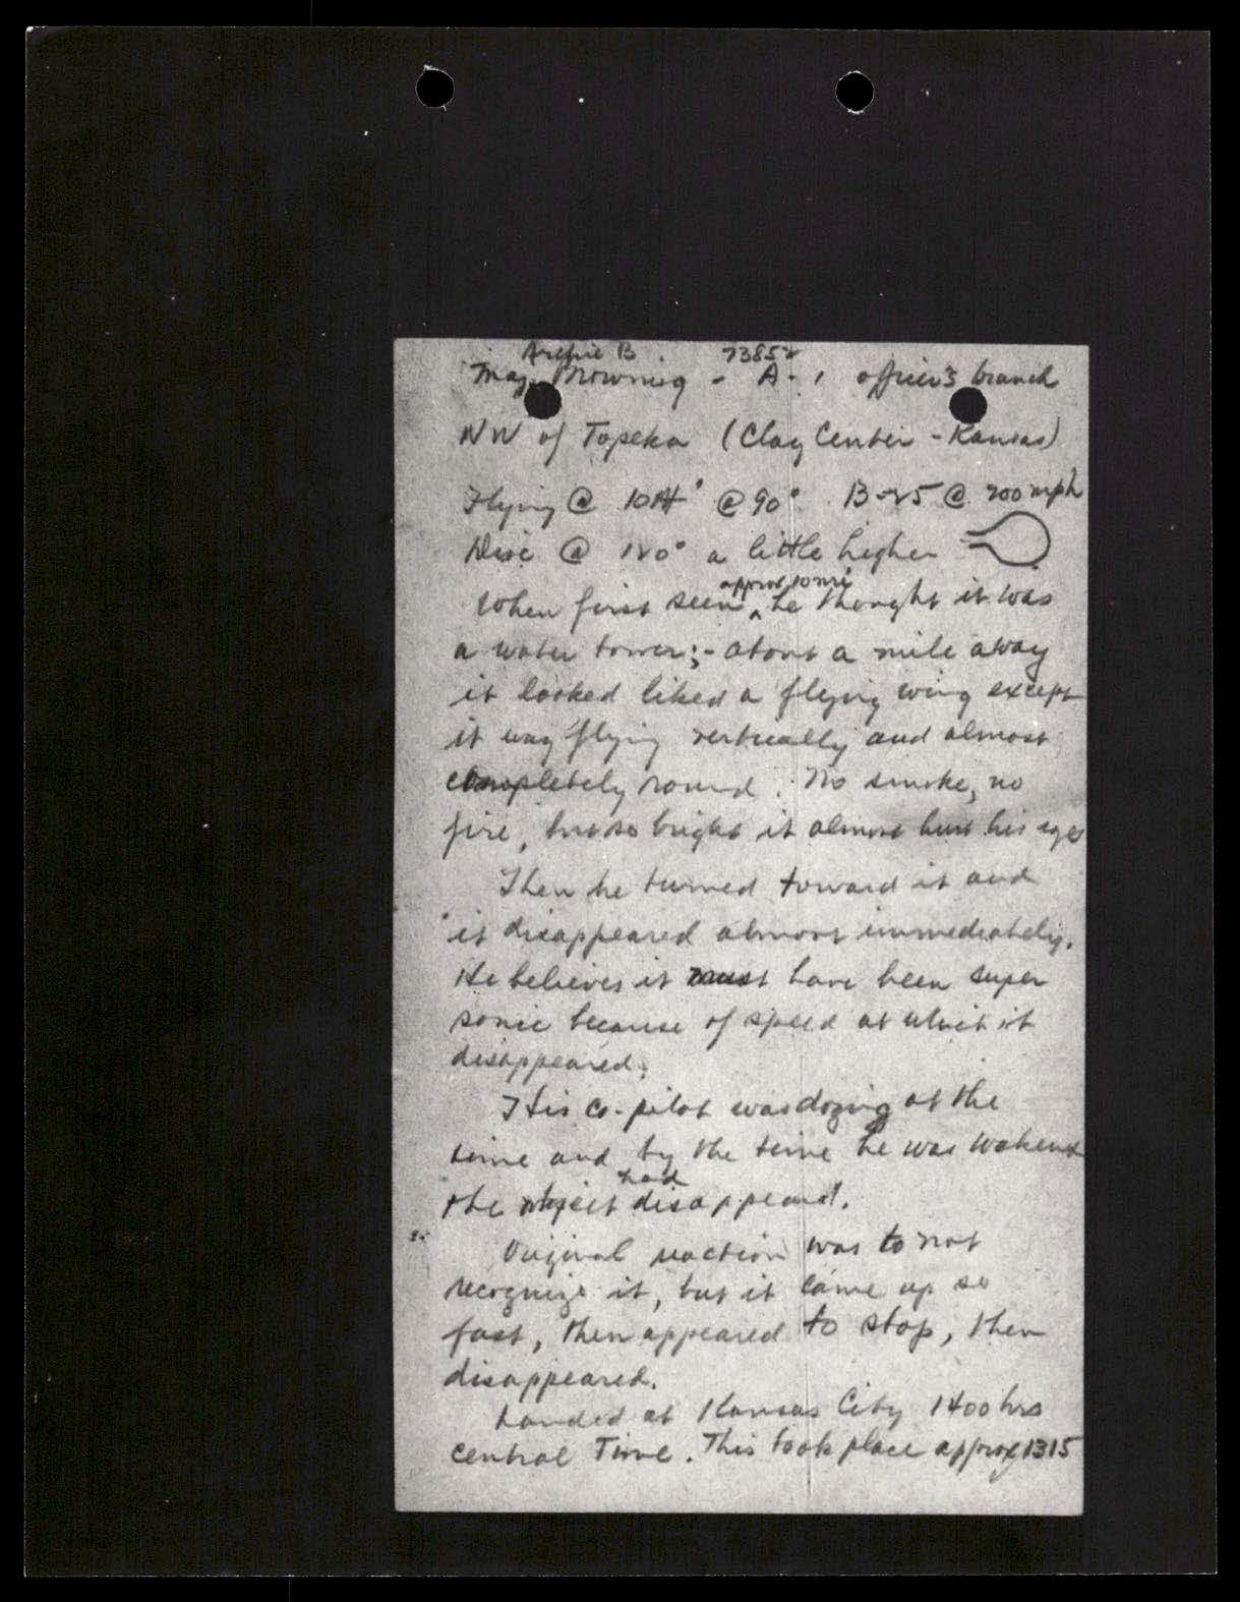 Archie B. 73852
Maj. Browning - A-1 officer's branch
NW of Topeka (Clay Center - Kansas)
Flying @ 10M' @ 90° B-25 @ 200 mph
Disc @ 120° a little higher
approx 10 mi
When first seen ^ he thought it was
a water tower;- about a mile away
it looked liked a flying wing except
it was flying vertically and almost
completely round. No smoke, no
fire, but so bright it almost hurt his eyes
Then he turned toward it and
it disappeared almost immediately.
He believes it must have been super
sonic because of speed at which it
disappeared.
His co-pilot was dozing at the
time and by the time he was wakened
had
the object disappeared.
Original reaction was to not
recognize it, but it came up so
fast, then appeared to stop, then
disappeared.
Landed at Kansas City 1400 hrs
Central Time. This took place approx 1315